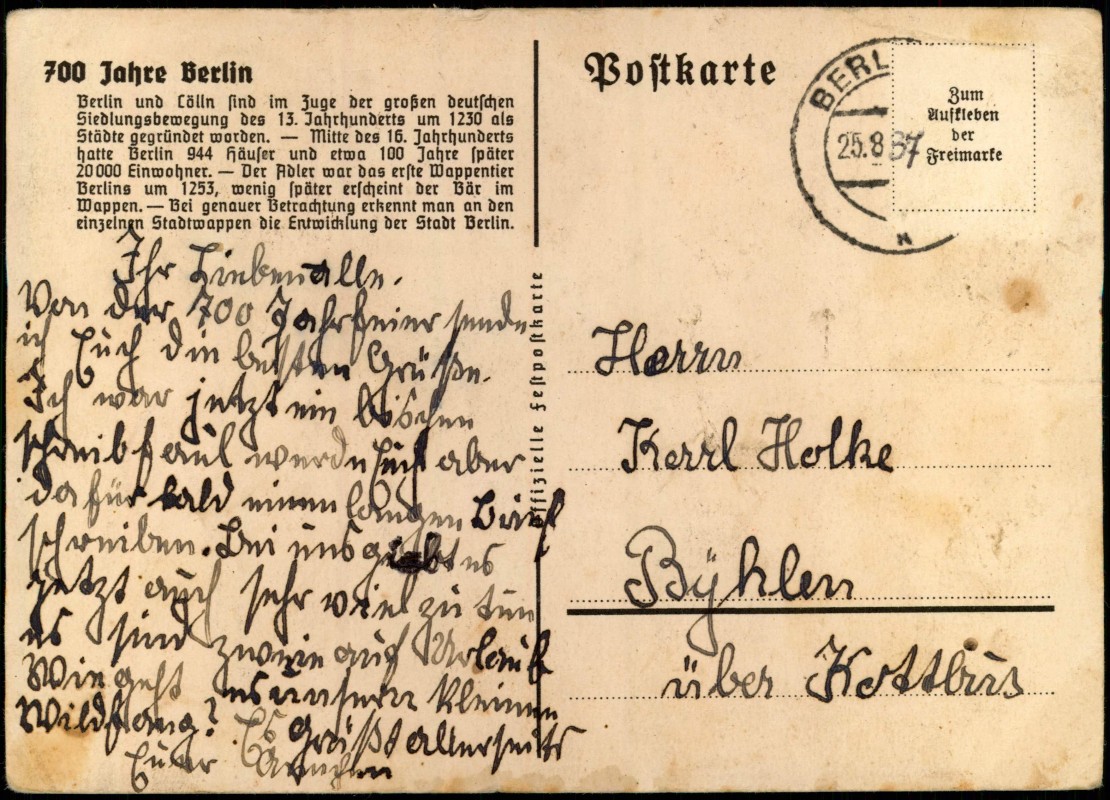 700 Jahre Berlin
Berlin und Cölln sind im Zuge der großen deutschen
Siedlungsbewegung des 13. Jahrhunderts um 1230 als
Städte gegründet worden. — Mitte des 16. Jahrhunderts
hatte Berlin 944 Häuser und etwa 100 Jahre später
20000 Einwohner. — Der Adler war das erste Wappentier
Berlins um 1253, wenig später erscheint der Bär im
Wappen. — Bei genauer Betrachtung erkennt man an den
einzelnen Stadtwappen die Entwicklung der Stadt Berlin.
Ihr Lieben alle.
Von der 700 Jahrfeier sende
ich Euch die besten Grüße.
Ich war jetzt ein bischen
schreibfaul werde Euch aber
dafür bald einen langen Brief
schreiben. Bei uns giebt es
jetzt auch sehr viel zu tun
es sind zweie auf Urlaub
Wie geht es unsern kleinen
Wildfang? Es grüßt allerseits
Euer Annchen
Offizielle Festpostkarte
Postkarte
BERL
25.8 37
Zum
Aufkleben
der
Freimarke
Herrn
Karl Holke
Byhlen
über Kottbus